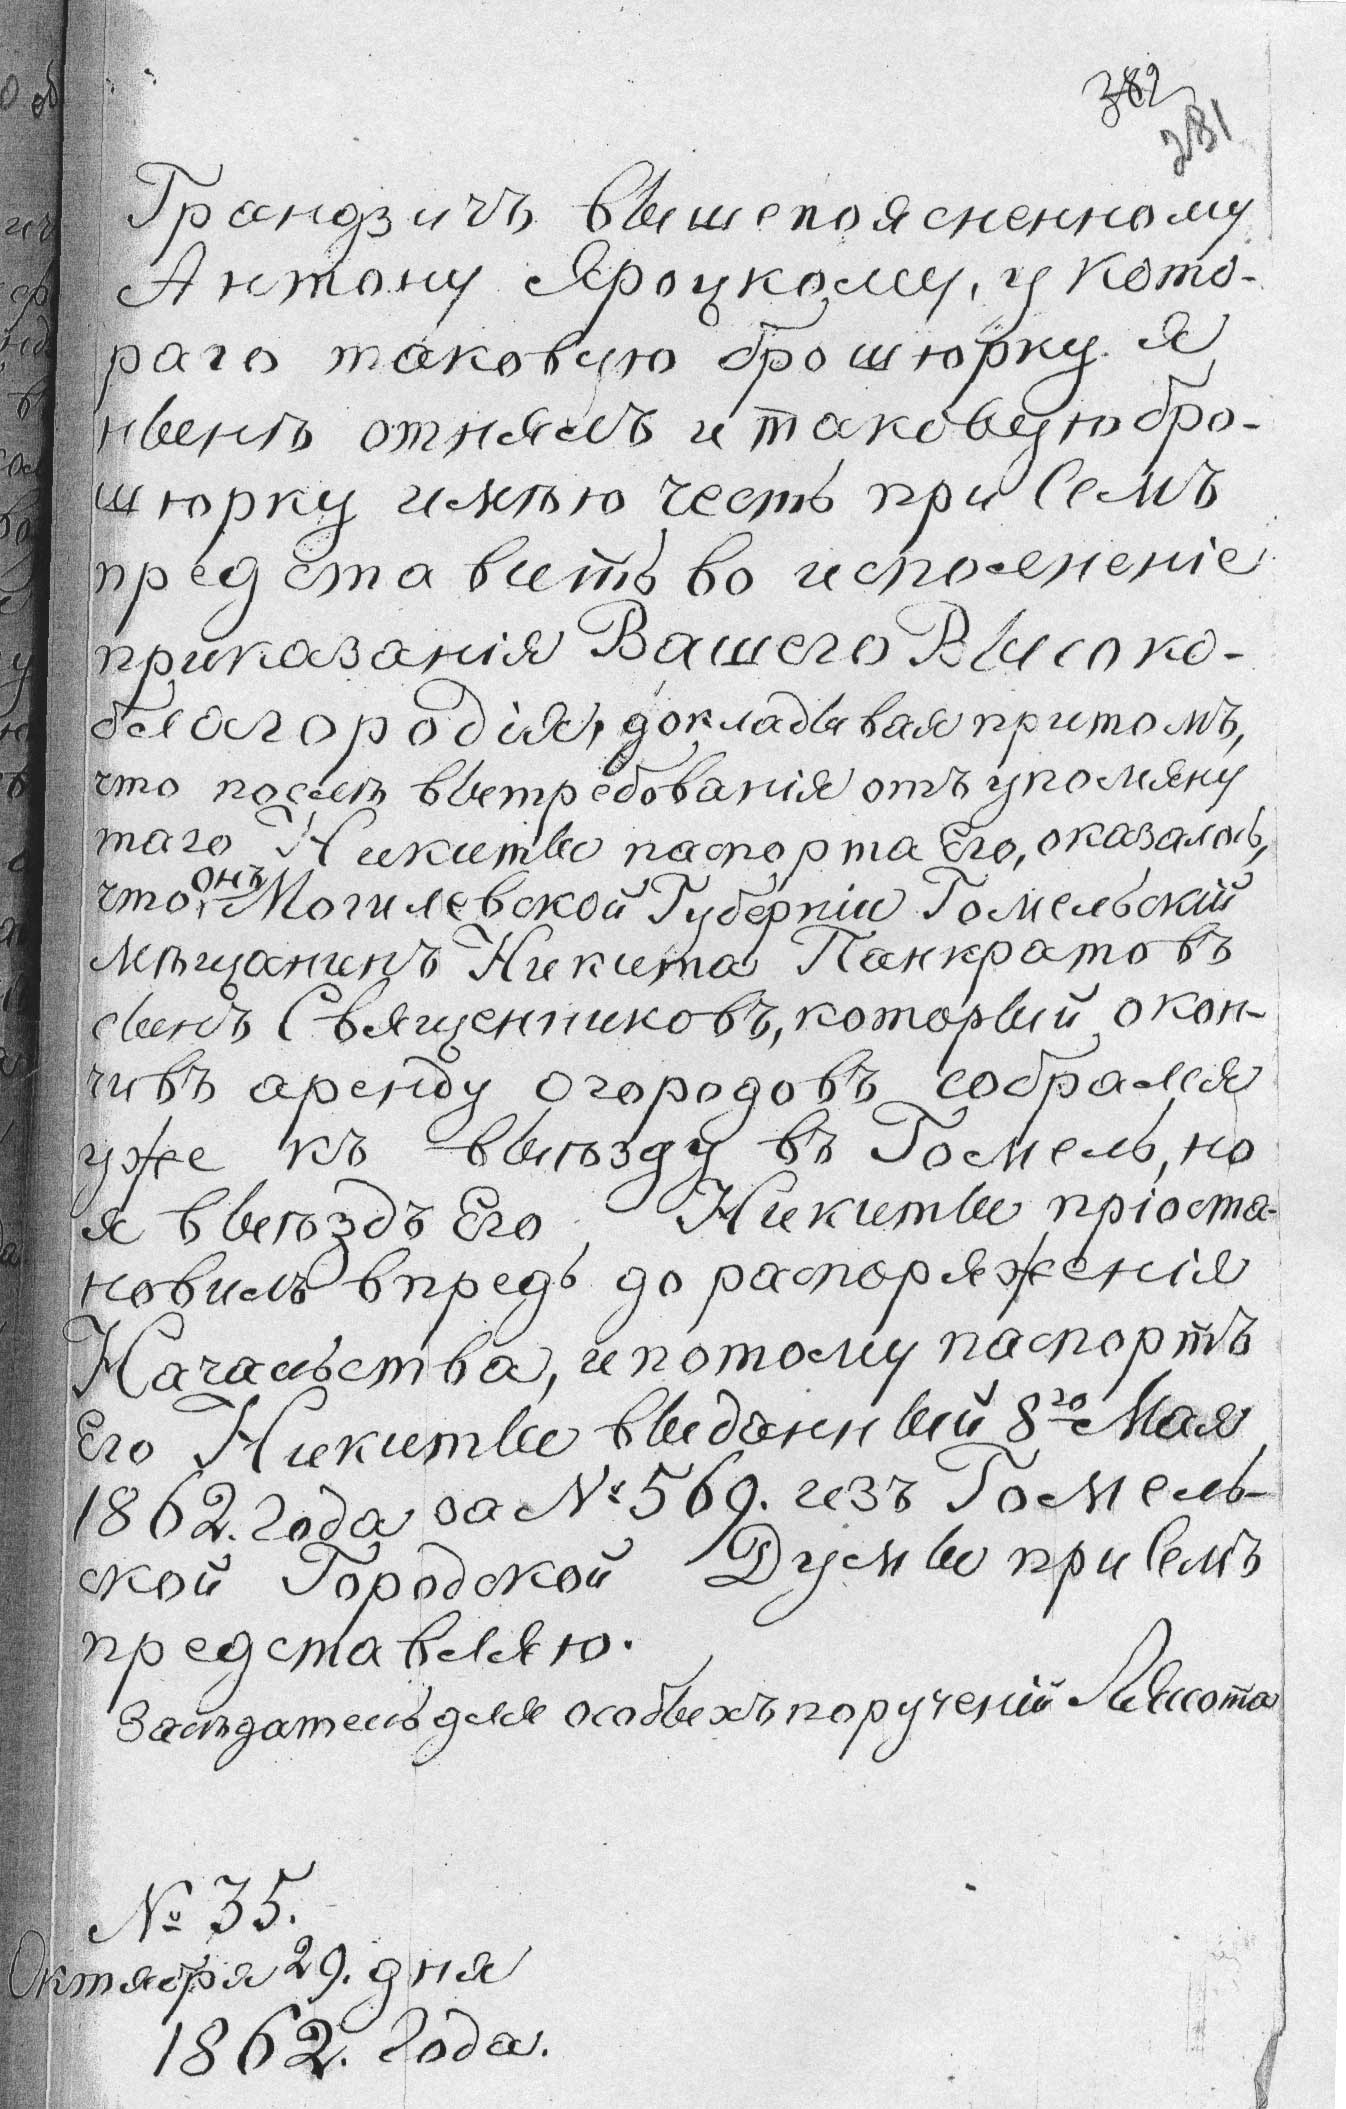 382
281
Грандзичъ вышепоясненному
Антону Яроцкому, у кото-
раго таковую брошюрку я
нынѣ отнялъ и таковую бро-
шюрку имѣю честь при семъ
представить во исполненіе
приказанія Вашего Высоко-
благородія, докладывая притомъ,
что послѣ вытребованія отъ упомяну
таго Никиты паспорта Его, оказалось,
что онъ Могилевской Губерніи Гомельскій
мѣщанинъ Никита Панкратовъ
сынъ Священниковъ, который окон-
чивъ аренду огородовъ собрался
уже къ выѣзду въ Гомель, но
я выѣздъ Его Никиты пріоста-
новилъ впредь до распоряженія
Начальства, и потому паспортъ
Его Никиты выданный 8го Мая
1862. года за № 569. изъ Гомель-
ской Городской Думы при семъ
представляю.
Засѣдатель для особыхъ порученій
№ 35.
Октября 29. дня
1862. года.